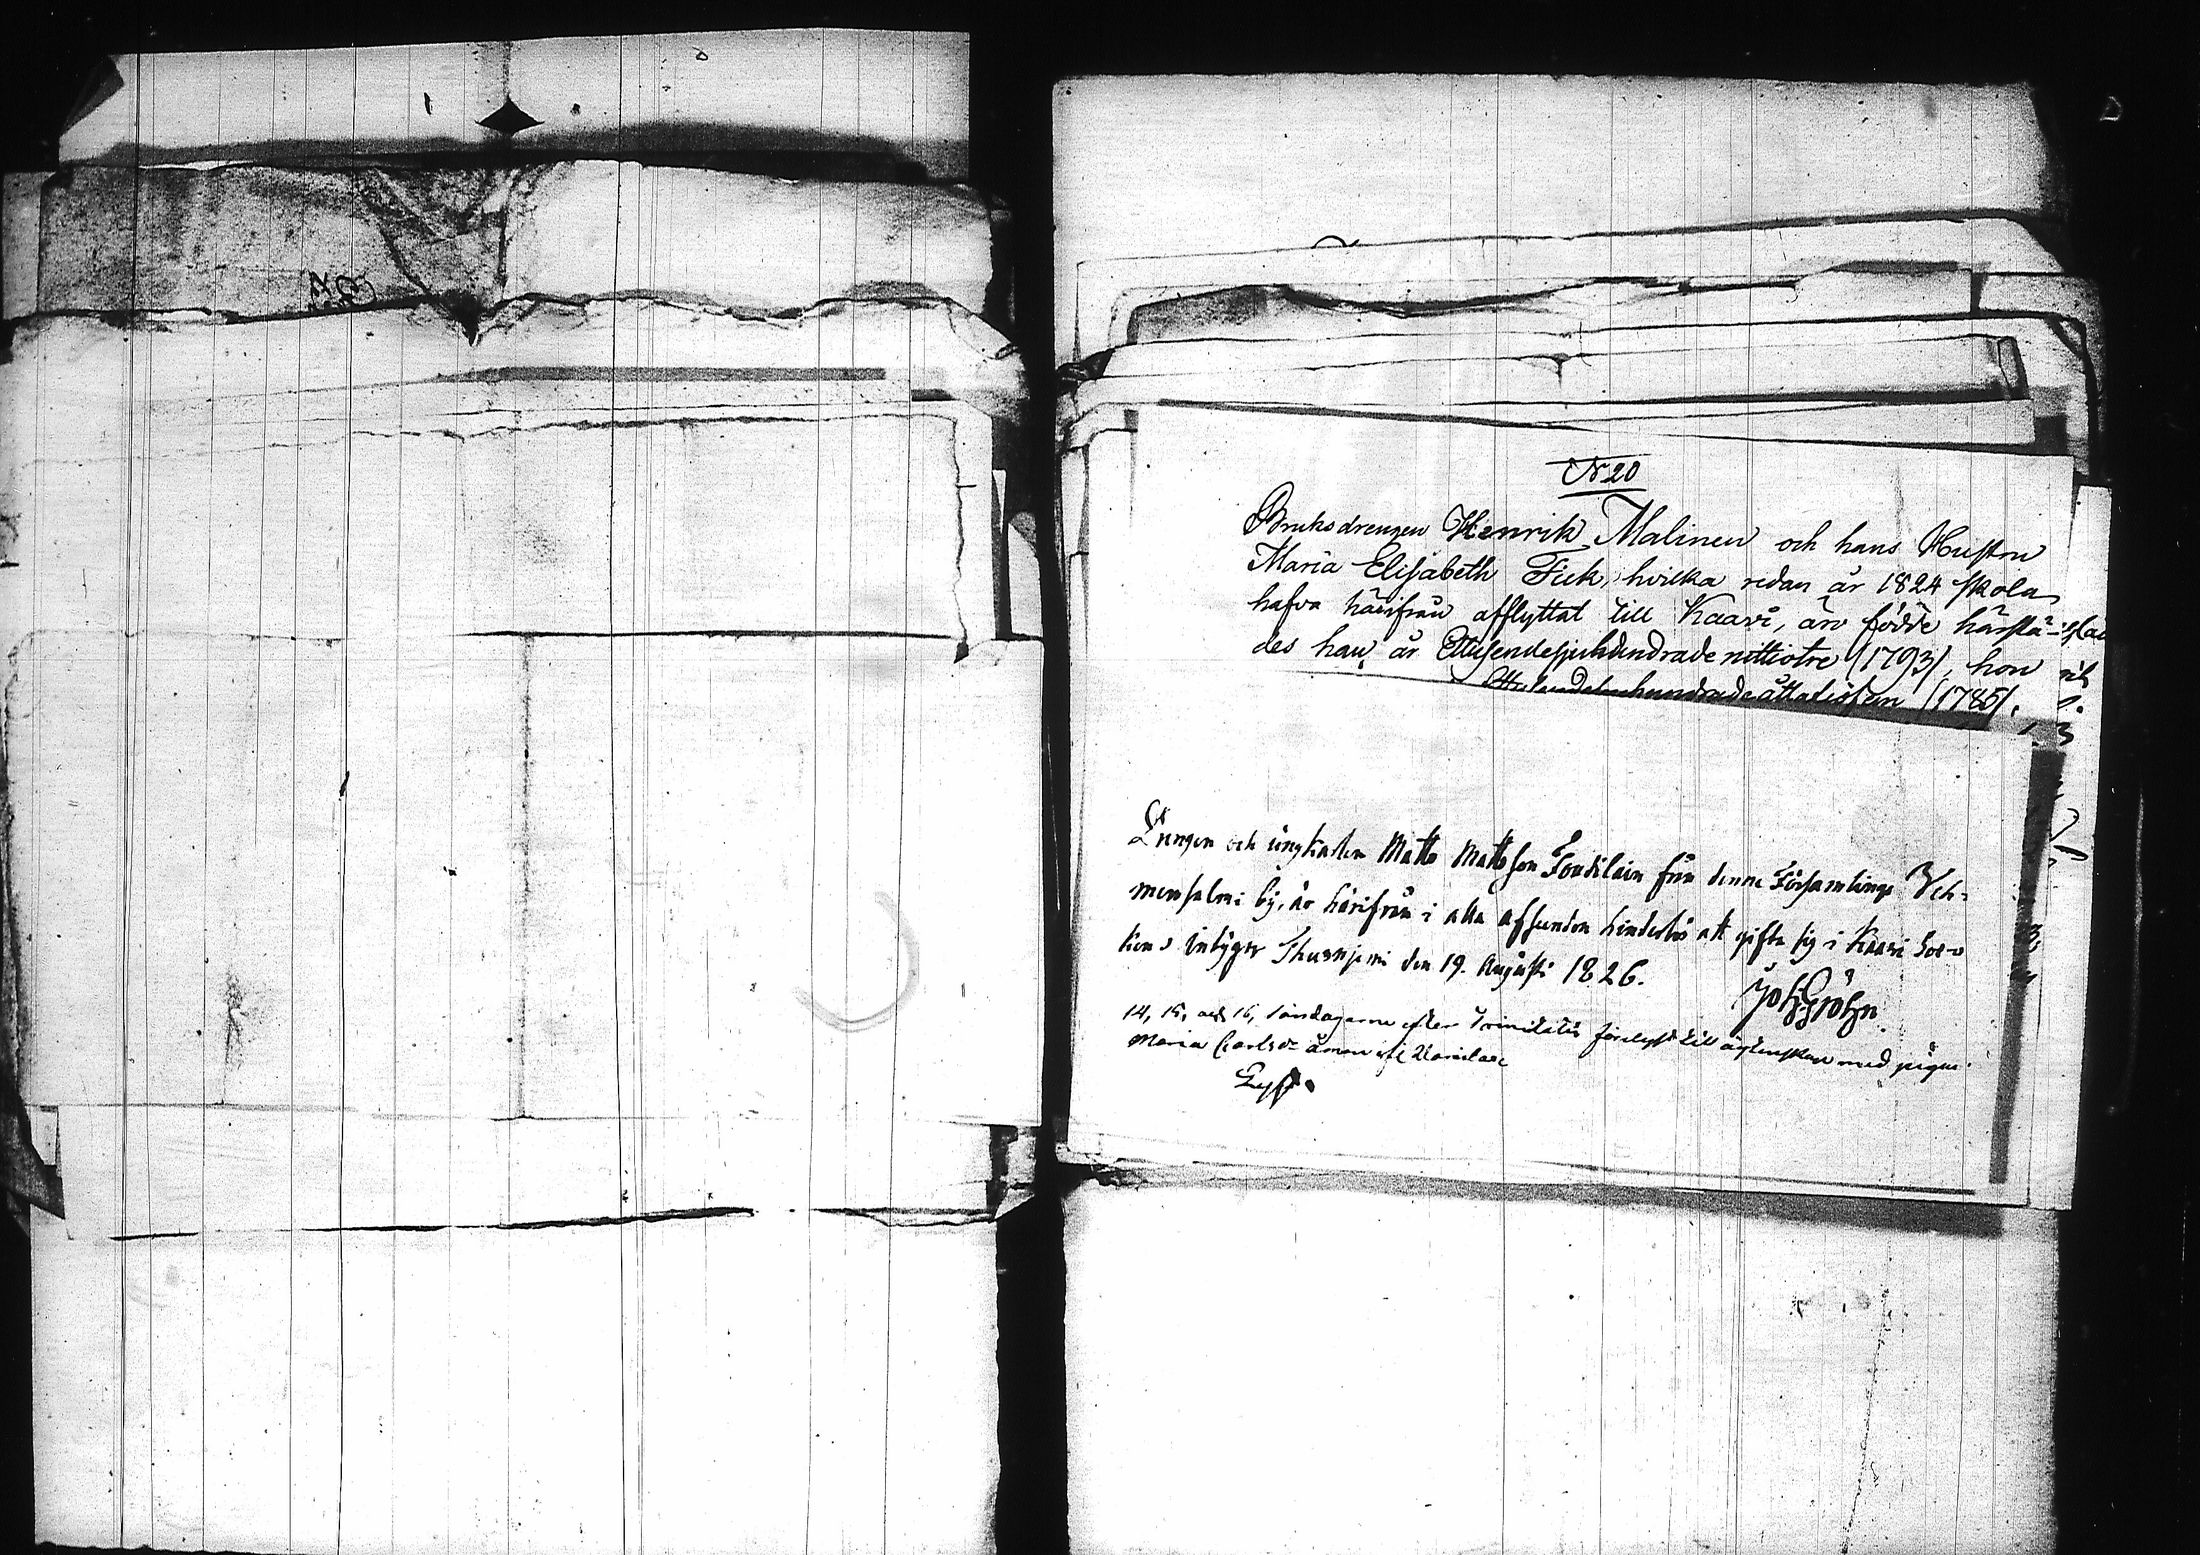 N 20
Bruksdrengen Henrik Malinen och hans Hustru
Maria Elisabeth Fick, hvilka redan år 1824 skola
hafva härifrån afflyttat till Kaavi, äro födde härstä-
des han år Ettusendesjuhundradenittiotre (1793), hon
Ettusendesjuhundradeåttatiofem (1785).
Drengen och ungkarlen Matts Mattsson från denne Församlings Veh-
mersalmi by, är härifrån i alla afseenden hinderlös att gifta sig i Kaavi Soc-
ken intygar den 19. Augusti 1826.
Joh. Gröhn
14, 15, och 16, Söndagarne efter Trinitatis förelyst till äktenskap med pigan
Maria Carlsdr